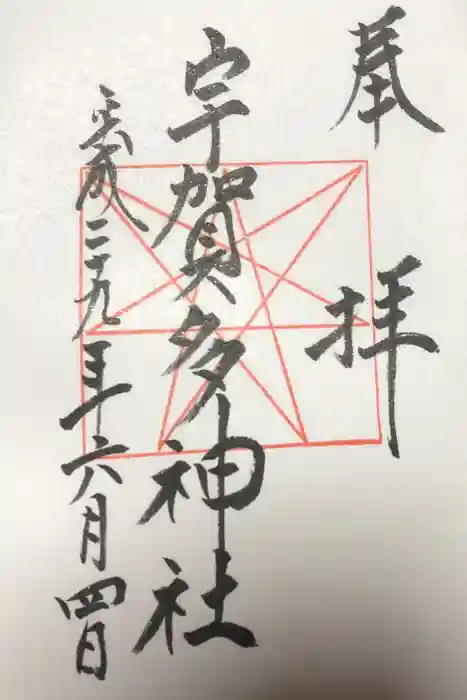 奉拝
宇賀多神社
平成二十九年六月四日